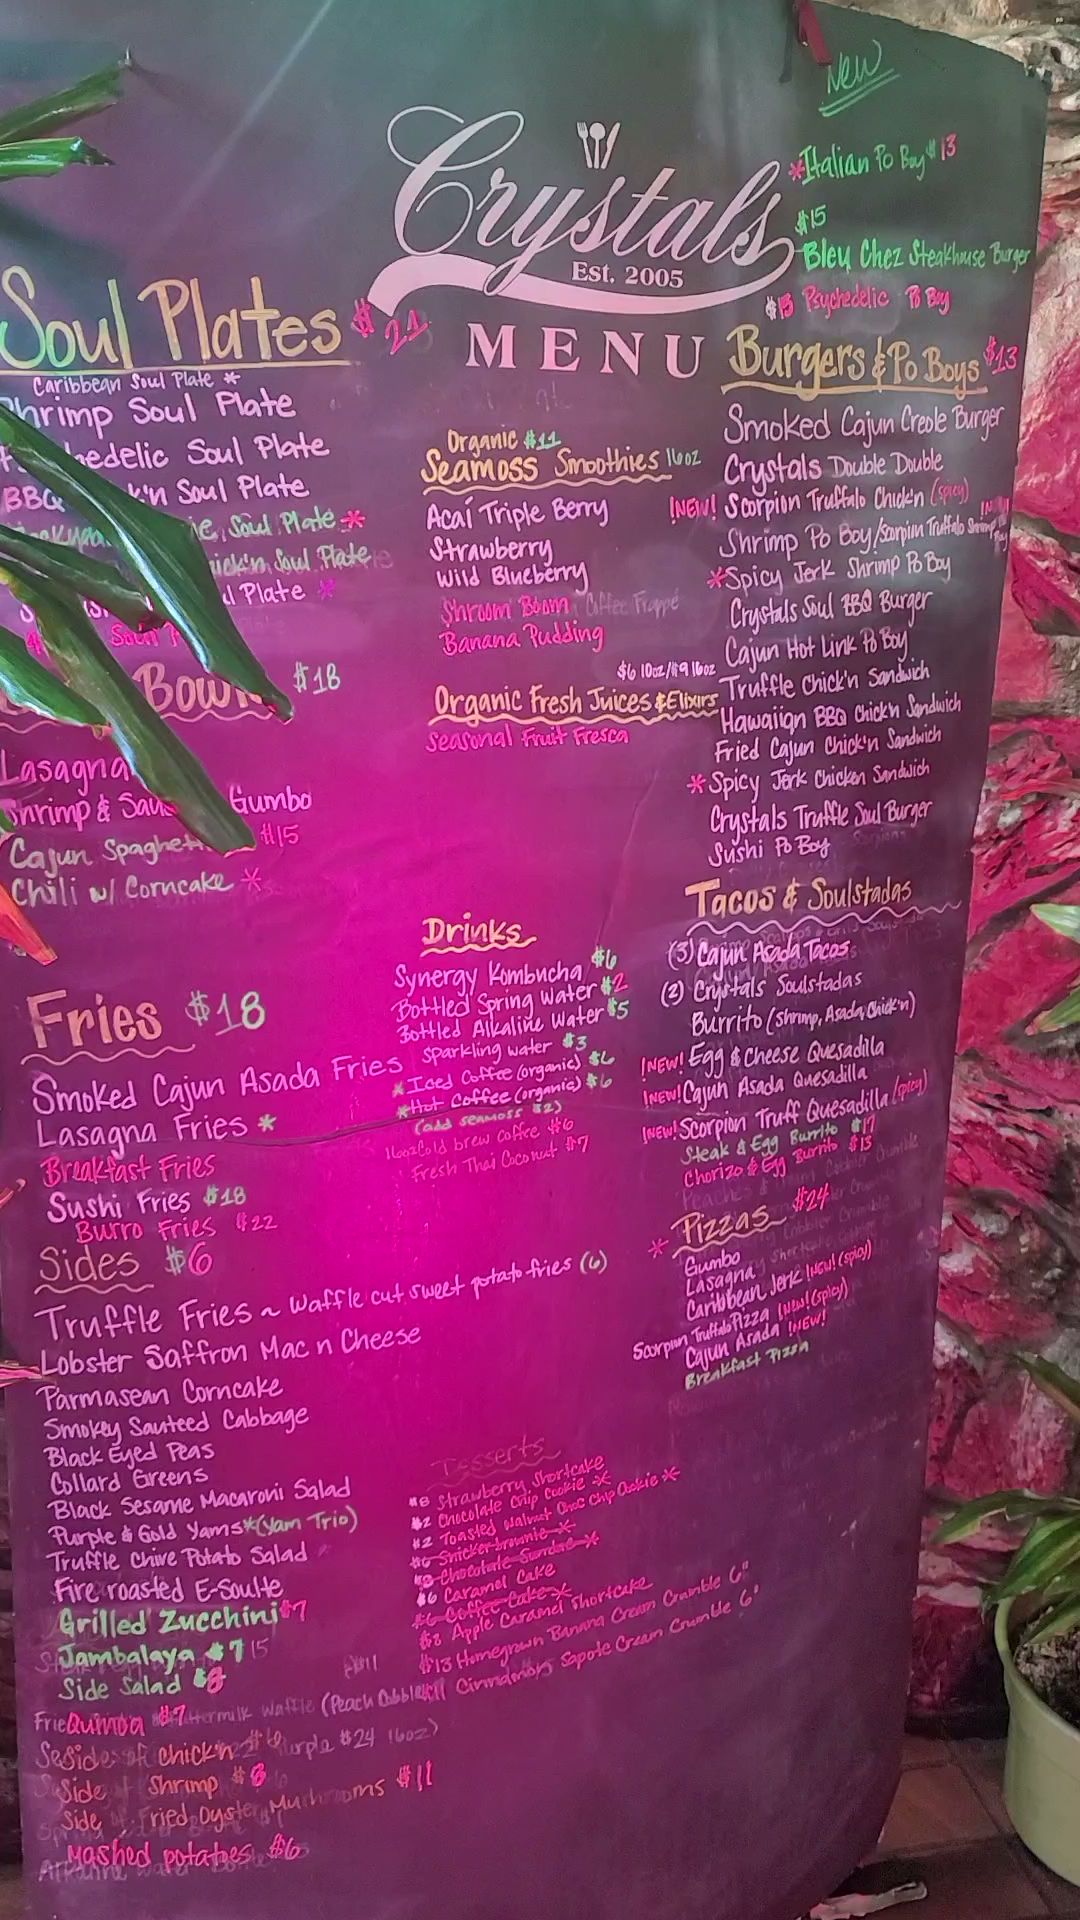 Crystals
Est. 2005
MENU
NEW
*Italian Po Boy $13
$15
Bleu Chez Steakhouse Burger
$13 Psychedelic Po Boy
Soul Plates $21
Caribbean Soul Plate *
Shrimp Soul Plate
Soul Plate
BBQ Soul Plate
Soul Plate *
Soul Plate
Plate *
$18
Lasagna
Shrimp & Gumbo
Cajun Spaghetti $15
Chili w/ Corncake *
Fries $18
Smoked Cajun Asada Fries
Lasagna Fries *
Breakfast Fries
Sushi Fries $18
Burro Fries $22
Sides $6
Truffle Fries ~ waffle cut sweet potato fries (6)
Lobster Saffron Mac n Cheese
Parmasean Corncake
Smokey Sauteed Cabbage
Black Eyed Peas
Collard Greens
Black Sesame Macaroni Salad
Purple & Gold Yams *(Yam Trio)
Truffle Chive Potato Salad
Fire roasted E-Soulte
Grilled Zucchini $7
Jambalaya $7
Side Salad $8
Quinoa $7
Side of chick'n $6
Side of Shrimp $8
Side of Fried Oyster Mushrooms $11
Mashed potatoes $6
Organic $11
Seamoss Smoothies 16oz
Acaí Triple Berry
Strawberry
Wild Blueberry
Shroom Boom Coffee Frappé
Banana Pudding
$6 10oz/$9 16oz
Organic Fresh Juices & Elixirs
Seasonal Fruit Fresca
Drinks
Synergy Kombucha $6
Bottled Spring Water $2
Bottled Alkaline Water $5
Sparkling water $3
*Iced Coffee (organic) $6
*Hot Coffee (organic) $6
(add seamoss $2)
16oz Cold brew coffee $6
Fresh Thai Coconut $7
Desserts
$8 Strawberry Shortcake
$2 Chocolate Chip Cookie *
$2 Toasted Walnut Choc Chip Cookie *
$6 Snickerbrownie *
$8 Chocolate Sundae *
$6 Caramel Cake
$6 Coffee Cake *
$8 Apple Caramel Shortcake
$13 Homegrown Banana Cream Crumble 6"
$11 Cinnamon Sapote Cream Crumble 6"
Burgers & Po Boys $13
Smoked Cajun Creole Burger
Crystals Double Double
!NEW! Scorpion Truffalo Chick'n (spicy)
Shrimp Po Boy/Scorpion Truffalo Shrimp
*Spicy Jerk Shrimp Po Boy
Crystals Soul BBQ Burger
Cajun Hot Link Po Boy
Truffle Chick'n Sandwich
Hawaiian BBQ Chick'n Sandwich
Fried Cajun Chick'n Sandwich
*Spicy Jerk Chicken Sandwich
Crystals Truffle Soul Burger
Sushi Po Boy
Tacos & Soulstadas
(3) Cajun Asada Tacos
(2) Crystals Soulstadas
Burrito (Shrimp, Asada, Chick'n)
!NEW! Egg & Cheese Quesadilla
!NEW! Cajun Asada Quesadilla
!NEW! Scorpion Truff Quesadilla (spicy)
Steak & Egg Burrito $17
Chorizo & Egg Burrito $13
* Pizzas $24
Gumbo
Lasagna
Caribbean Jerk !NEW! (spicy)
Scorpion Truffalo Pizza !NEW! (spicy)
Cajun Asada !NEW!
Breakfast Pizza